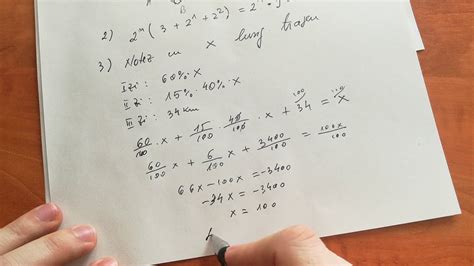 2) 2ⁿ ( 3 + 2¹ + 2² ) = 2ⁿ
3) Notez cu x lung traseu
I zi : 60% · x
II zi : 15% · 40% · x
III zi : 34 km
60/100 · x + 15/100 · 40/100 · x + 34 = x
60/100 x + 6/100 x + 3400/100 = 100x/100
66x - 100x = -3400
-34x = -3400
x = 100